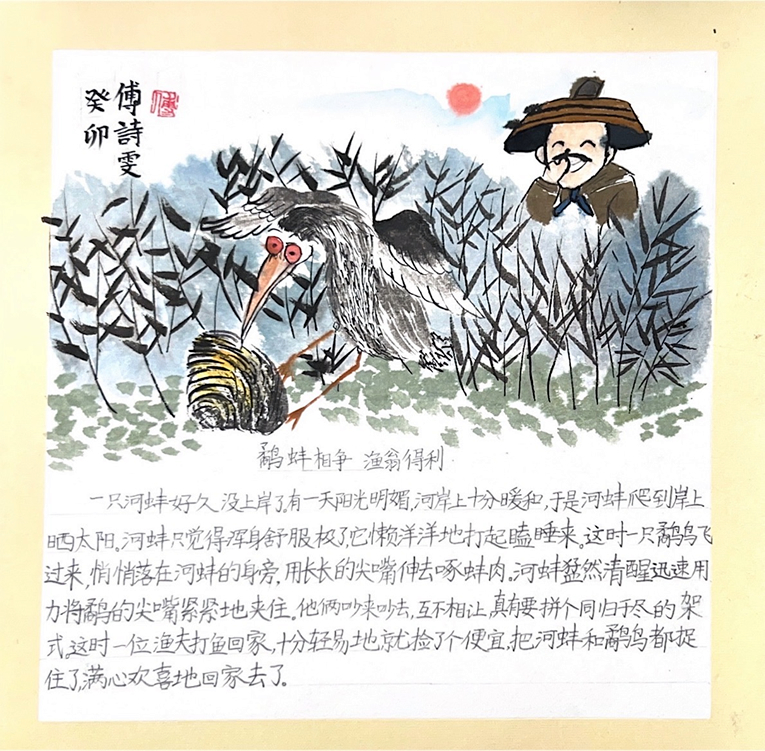 傅詩雯
癸卯
傅
鹬蚌相争 渔翁得利
一只河蚌好久没上岸了,有一天阳光明媚,河岸上十分暖和,于是河蚌爬到岸上
晒太阳。河蚌只觉得浑身舒服极了,它懒洋洋地打起瞌睡来。这时一只鹬鸟飞
过来,悄悄落在河蚌的身旁,用长长的尖嘴伸去啄蚌肉。河蚌猛然清醒迅速用
力将鹬的尖嘴紧紧地夹住。他俩吵来吵去,互不相让,真有要拼个同归于尽的架
式,这时一位渔夫打鱼回家,十分轻易地就捡了个便宜,把河蚌和鹬鸟都捉
住了,满心欢喜地回家去了。